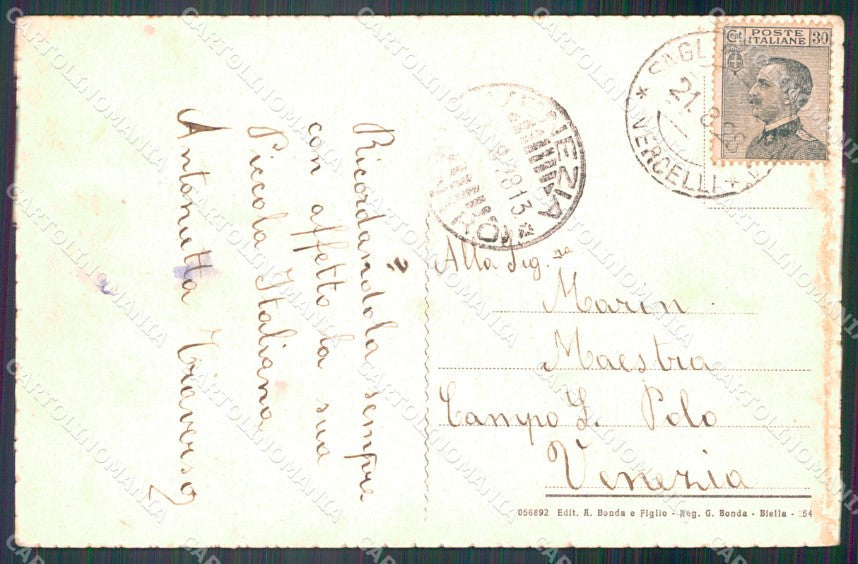 Ricordandola sempre
con affetto la sua
Piccola Italiana
Antonietta Traverso
POSTE ITALIANE
Ct 30
VERCELLI
VENEZIA
Alla Sig.ra
Marin
Maestra
Campo S. Polo
Venezia
056892 Edit. A. Bonda e Figlio - Neg. G. Bonda - Biella - 54
CARTOLINOMANIA